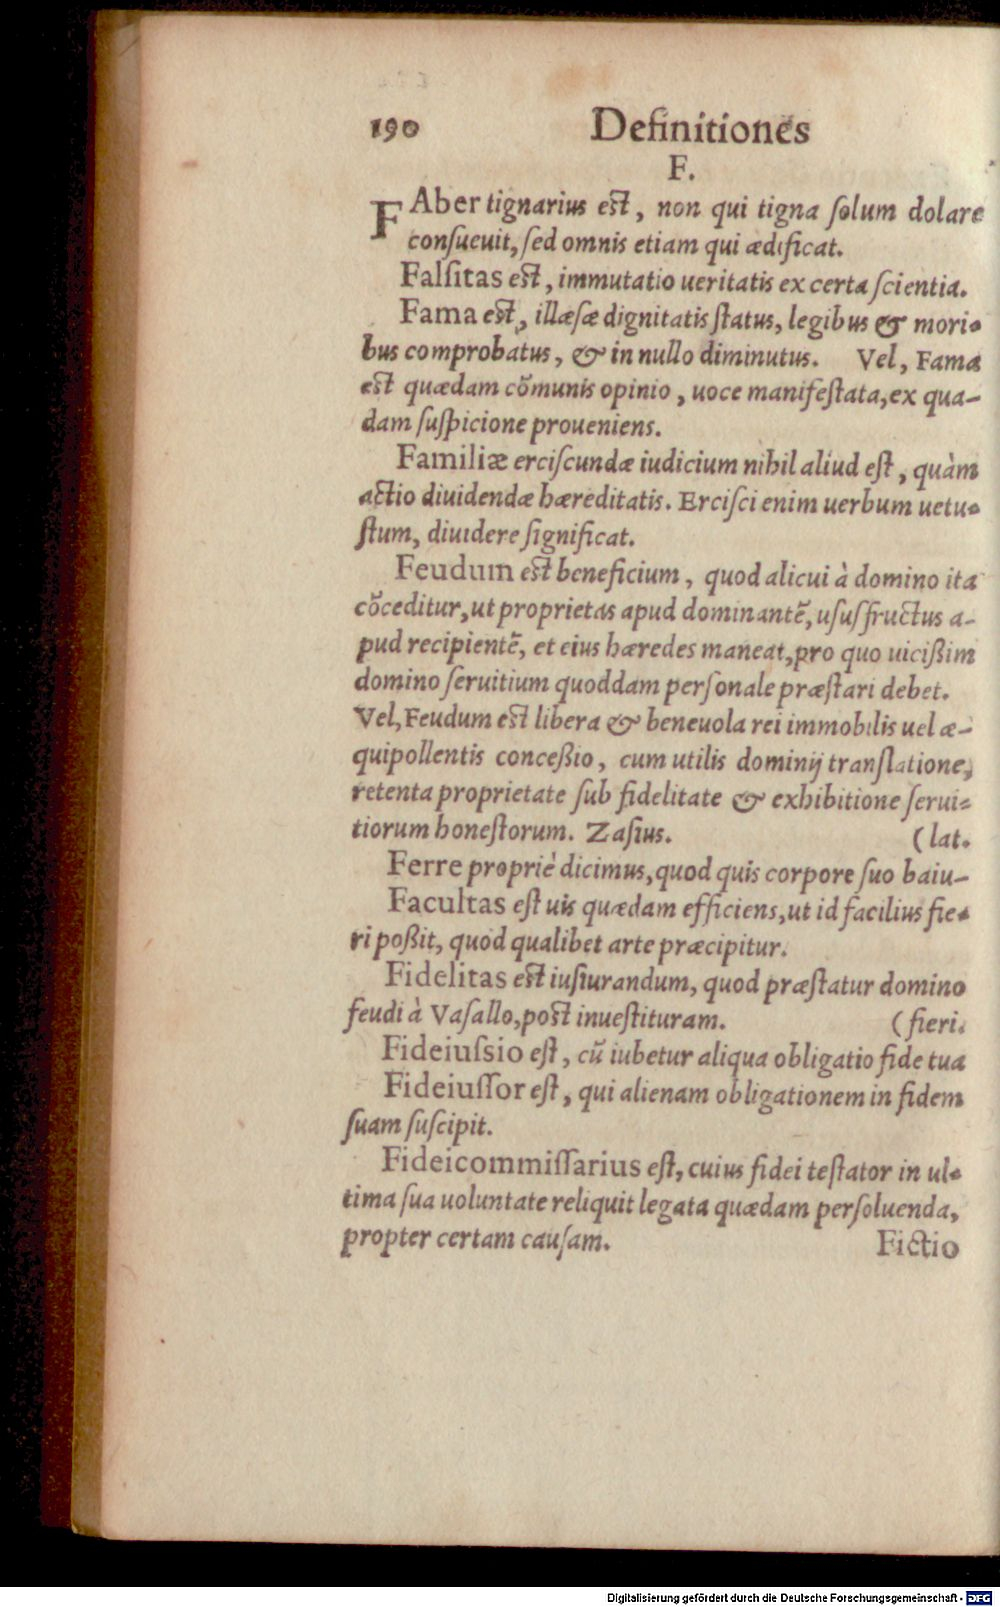 190 Definitiones
F.
FAber tignarius est, non qui tigna ſolum dolare
conſueuit, ſed omnis etiam qui ædificat.
Falſitas est, immutatio ueritatis ex certa ſcientia.
Fama est, illæſæ dignitatis ſtatus, legibus & mori-
bus comprobatus, & in nullo diminutus. Vel, Fama
est quædam cõmunis opinio, uoce manifeſtata, ex qua-
dam ſuſpicione proueniens.
Familiæ erciſcundæ iudicium nihil aliud eſt, quàm
actio diuidendæ hæreditatis. Erciſci enim uerbum uetu-
ſtum, diuidere ſignificat.
Feudum est beneficium, quod alicui à domino ita
cõceditur, ut proprietas apud dominantẽ, uſusfructus a-
pud recipientẽ, et eius hæredes maneat, pro quo uicißim
domino ſeruitium quoddam perſonale præſtari debet.
Vel, Feudum est libera & beneuola rei immobilis uel æ-
quipollentis conceßio, cum utilis dominij tranſlatione,
retenta proprietate ſub fidelitate & exhibitione ſerui-
tiorum honeſtorum. Zaſius. (lat.
Ferre propriè dicimus, quod quis corpore ſuo baiu-
Facultas eſt uis quædam efficiens, ut id facilius fie-
ri poßit, quod qualibet arte præcipitur.
Fidelitas est iuſiurandum, quod præſtatur domino
feudi à Vaſallo, post inueſtituram. (fieri.
Fideiuſsio eſt, cũ iubetur aliqua obligatio fide tua
Fideiuſſor eſt, qui alienam obligationem in fidem
ſuam ſuſcipit.
Fideicommiſſarius eſt, cuius fidei teſtator in ul-
tima ſua uoluntate reliquit legata quædam perſoluenda,
propter certam cauſam. Fictio
Digitalisierung gefördert durch die Deutsche Forschungsgemeinschaft - DFG